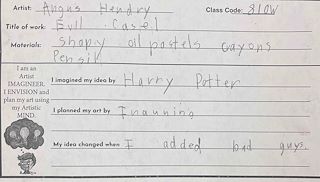 Artist: Angus Hendry Class Code: 210W
Title of work: Evil Casel
Materials: shapy oil pastels crayons
Pensil
I am an
Artist
IMAGINEER.
I ENVISION and
plan my art using
my Artistic
MIND.
I imagined my idea by Harry Potter
I planned my art by
My idea changed when I added bad guys.